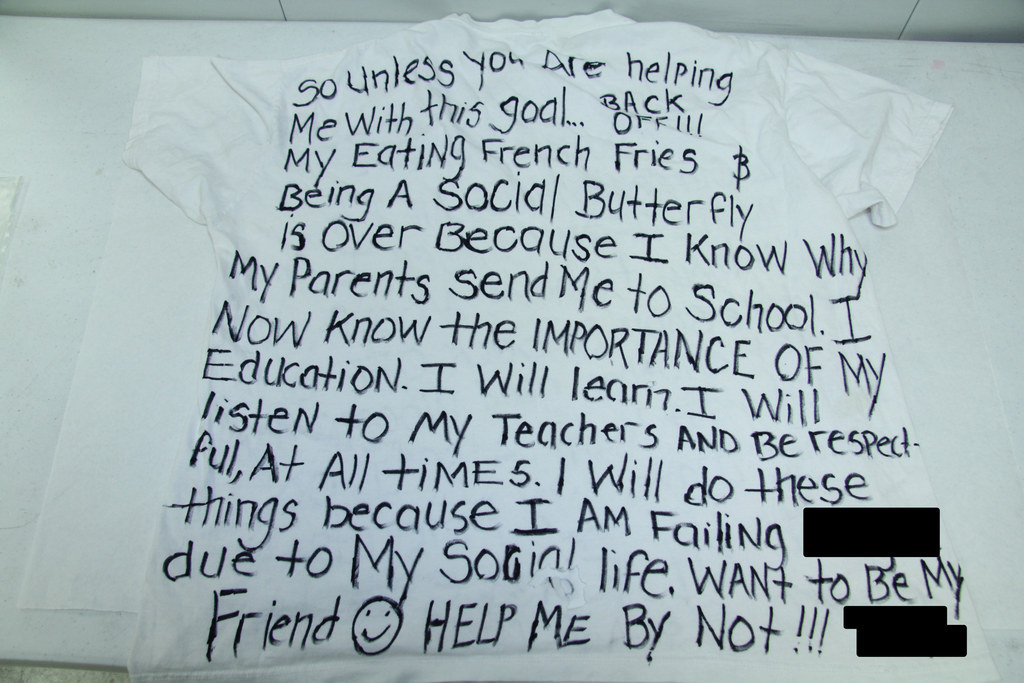 So Unless you Are helping
Me With this goal... BACK OFF!!!
My Eating French Fries &
Being A Social Butterfly
is Over Because I Know Why
My Parents Send Me to School. I
NOW KNOW the IMPORTANCE OF MY
Education. I Will learn. I Will
listen to My Teachers AND Be respect-
ful, At All tiMES. I Will do these
things because I AM Failing
due to My Social life. WANt to Be My
Friend ☺ HELP ME By Not!!!